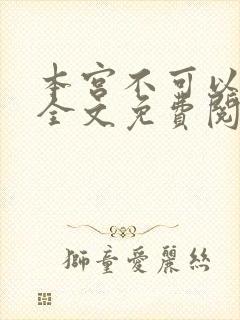 本宫不可以
全文免费阅
狮童爱丽丝